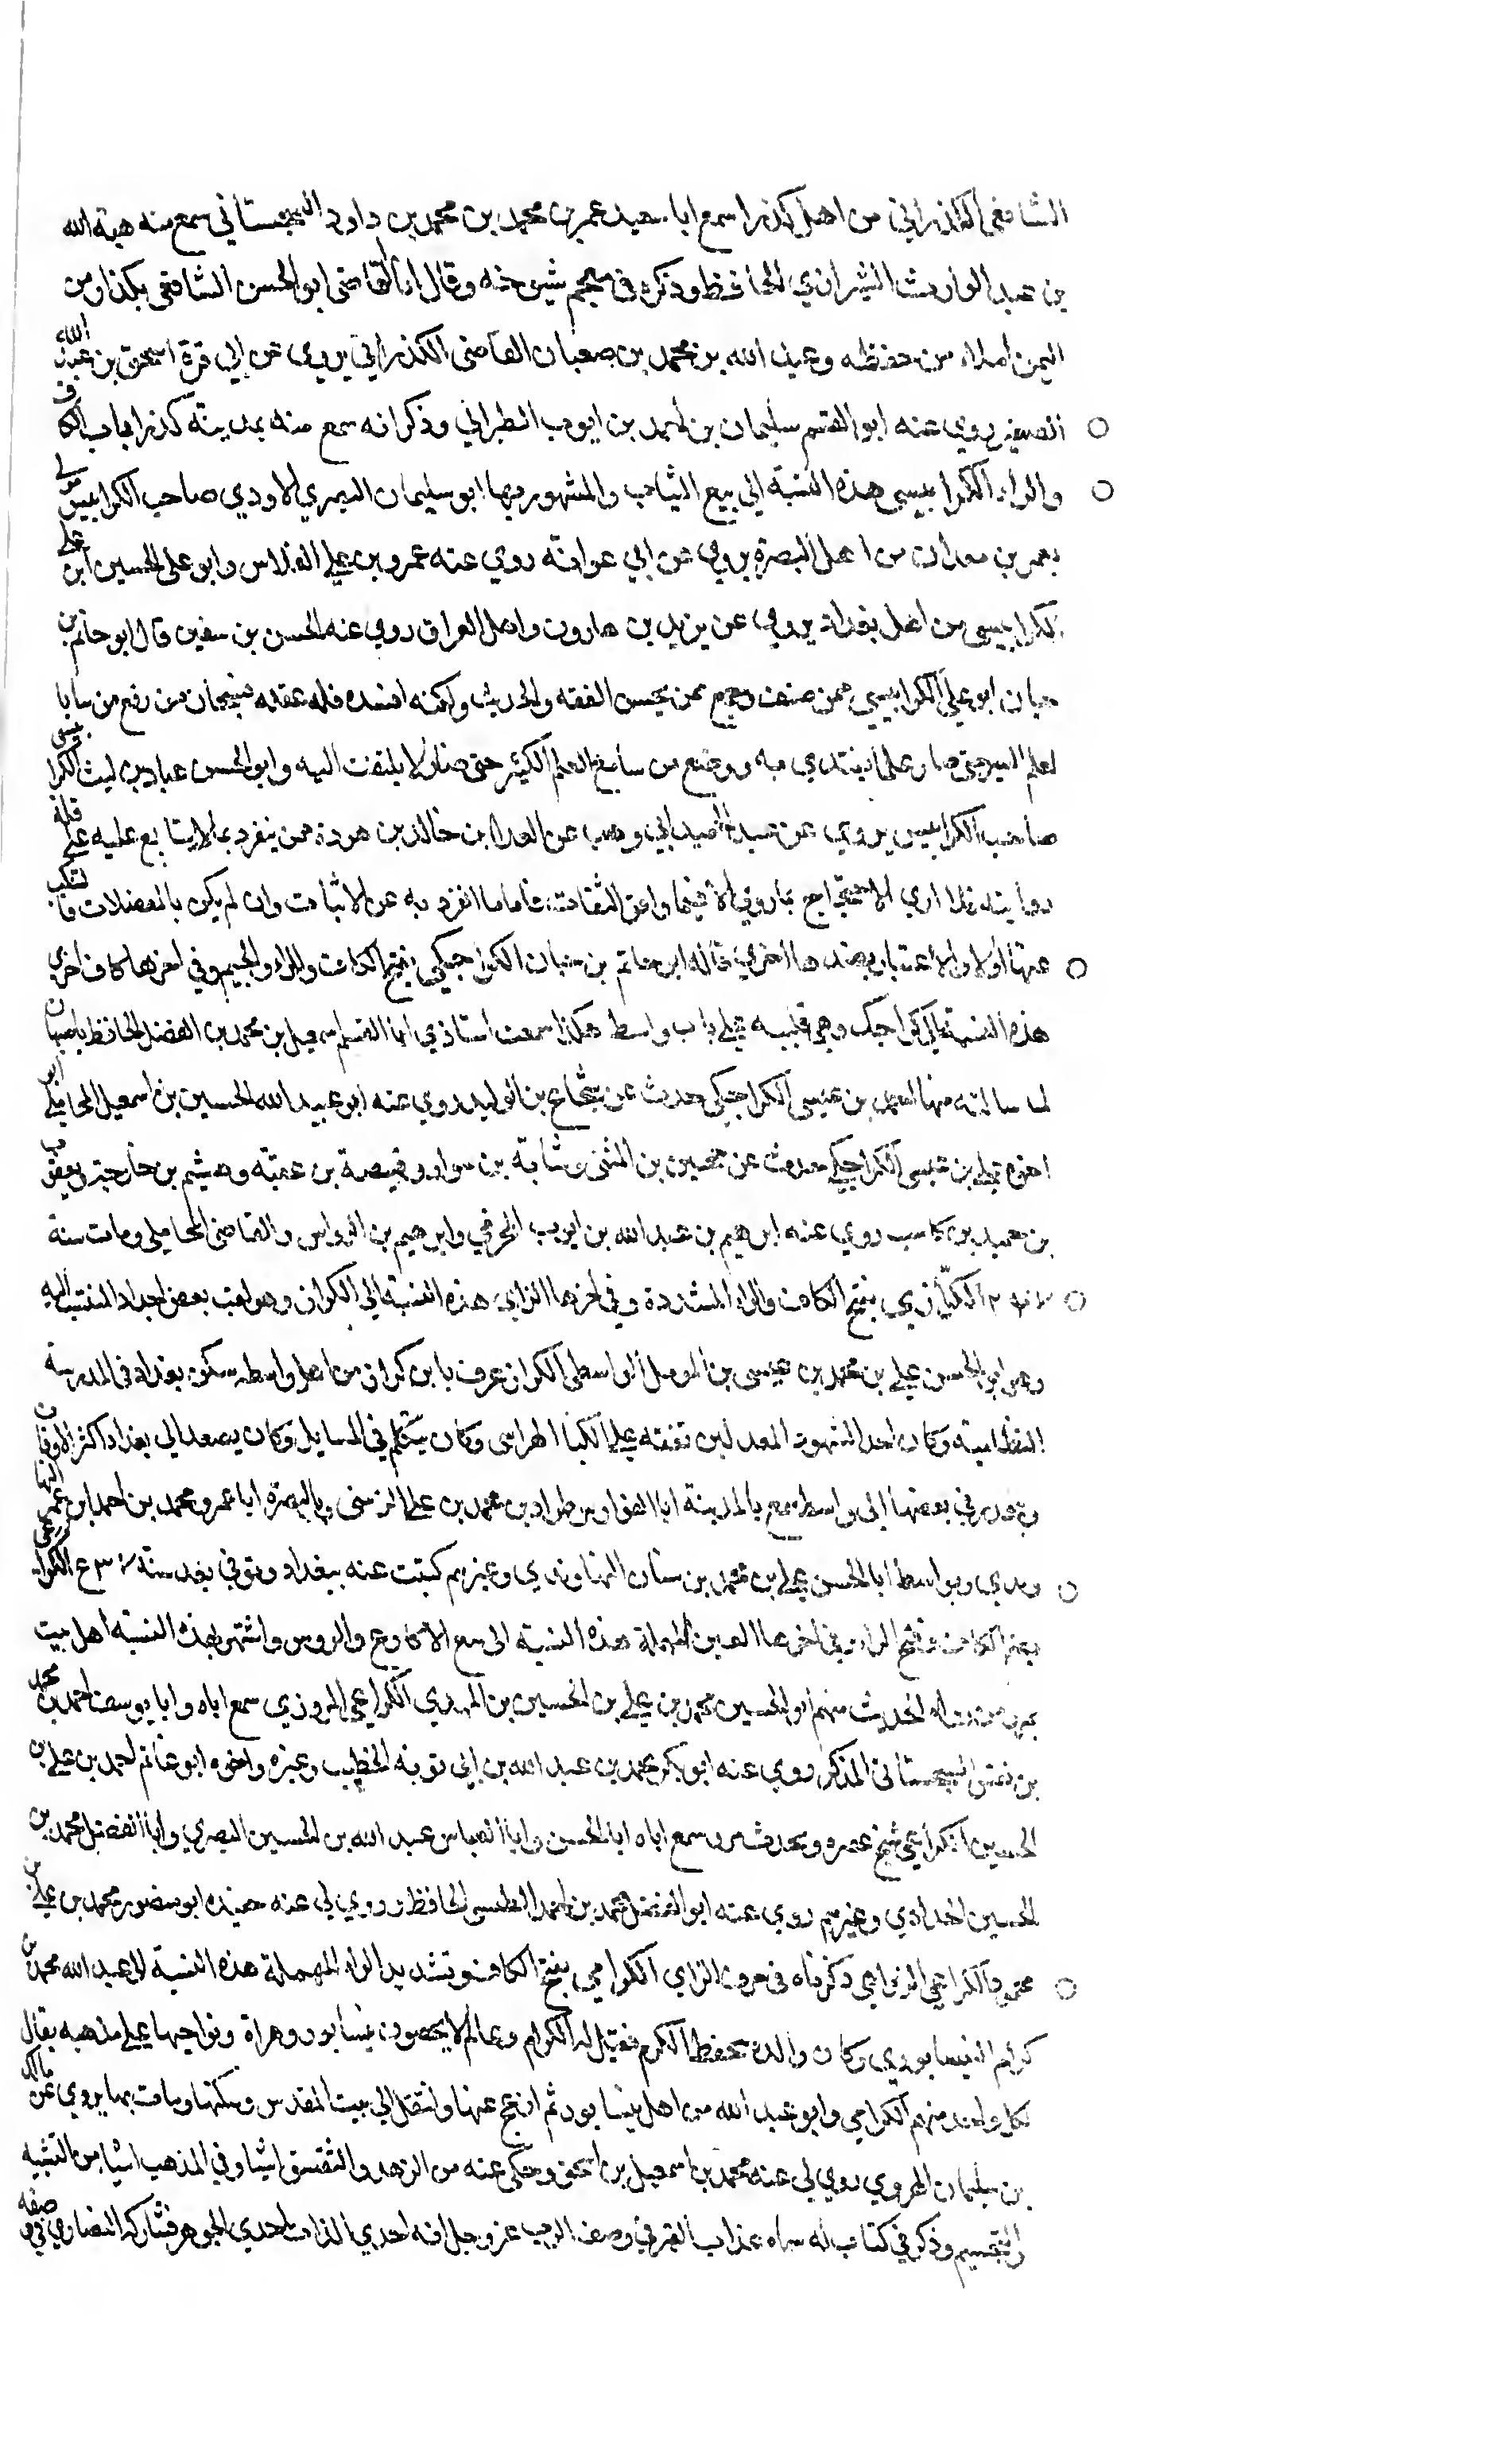 الشافعي الكدرائي من اهل كدرا سمع ابا سعيد عمر بن محمد بن محمد بن داود السجستاني سمع منه هبة الله
بن عبد الوارث الشيرازي الحافظ وذكره في معجم شيوخه وقال انا القاضي ابو الحسن الشافعي بكدرا من
اليمن املاء من حفظه وعبد الله بن محمد بن صعبان القاضي الكدرائي يروي عن ابي قرة اسحق بن عبد الله
روي عنه ابو القسم سليمان بن احمد بن ايوب الطبراني وذكر انه سمع منه بمدينة كدرا باب الكاف
والراء الكرابيسي هذه النسبة الي بيع الثياب والمشهور بها ابو سليمان الاودي صاحب الكرابيس مولي
معمر بن من اهل البصرة يروي عن ابي عوانة روي عنه عمرو بن علي الفلاس وابو علي الحسين ابن علي
الكرابيسي من اهل بغداد يروي عن يزيد بن هارون واهل العراق روي عنه الحسن بن سفين قال ابو حاتم بن
حبان ابو علي الكرابيسي ممن صنف وجمع ممن يحسن الفقه والحديث ولكنه افسده قلة عقله فسبحان من رفع من شا با
لعلم اليسير حتي صار علما يقتدي به ووضع من شا مع العلم الكثير حتي صار لا يلتفت اليه وابو الحسن عباد بن ليث الكرابيسي
صاحب الكرابيس يروي عن عبد المجيد ابي وهب عن العدا بن خالد بن هوذة ممن ينفرد بما لا يتابع عليه علي قلة
روايته فلا اري الاحتجاج بما روي الا فيما وافق الثقات فاما ما انفرد به عن الاثبات وان لم يكن بالمعضلات
قاله ابو حاتم بن حبان الكراجكي بفتح الكاف والراء والجيم وفي اخرها كاف اخري
هذه النسبة الي كراجك وهي قرية علي باب واسط هكذا سمعت استاذي ابا القسم اسمعيل بن محمد بن الفضل الحافظ باصبهان
لما سالته منها بن عيسي الكراجكي حدث عن شجاع بن الوليد روي عنه ابو عبيد الله الحسين بن اسمعيل المحاملي
اخوه علي بن عيسي الكراجكي حدث عن حجين بن المثني وشبابة بن سوار وقبيصة بن عقبة وهيثم بن خارجة ويعقوب
بن حميد بن كاسب روي عنه ابرهيم بن عبد الله بن ايوب المخرمي وابرهيم بن والقاضي المحاملي ومات سنة
الكرازي بفتح الكاف والراء المشددة وفي اخرها الزاي هذه النسبة الي الكراز وهو لقب بعض اجداد المنتسب اليه
وهو ابو الحسن علي بن محمد بن عيسي بن المومل الواسطي الكراز عرف بابن كراز من اهل واسط سكن بغداد في المدرسة
النظامية وكان احد الشهود المعدلين تفقه علي الكيا الهراسي وكان يتكلم في المسايل وكان يصعد الي بغداد اكثر الاوقات
في بعضها الي واسط سمع بالمدينة ابا الفوارس طراد بن محمد بن علي الزينبي وبالبصرة ابا عمرو محمد بن احمد ابن عمر
وبواسط ابا الحسن علي بن محمد بن وغيرهم كتبت عنه ببغداد وتوفي بعد سنة الكراعي
بضم الكاف وفتح الراء وفي اخرها العين المهملة هذه النسبة الي بيع الاكارع والروس واشتهر بهذه النسبة اهل بيت
بمرو من رواة الحديث منهم ابو الحسين محمد بن علي بن الحسين بن المهدي الكراعي المروزي سمع اباه وابا يوسف احمد بن محمد
بن السجستاني المذكر روي عنه ابو بكر محمد بن عبد الله بن ابي توبة الخطيب وغيره واخوه ابو غانم احمد بن علي بن
الحسين الكراعي شيخ عصره ومحدث مرو سمع اباه ابا الحسن وابا العباس عبد الله بن الحسين البصري وابا الفضل محمد بن
الحسين الحدادي وغيرهم روي عنه ابو الفضل محمد بن احمد الطبسي الحافظ وروي لي عنه حفيده ابو منصور محمد بن علي بن
محمود الكراعي ذكرناه في حرف الزاي الكرامي بفتح الكاف وتشديد الراء المهملة هذه النسبة لابي عبد الله محمد بن
كرام النيسابوري وكان والده يحفظ الكرم فقيل له الكرام وعالم لا يحصون بنيسابور وهراة ونواحيها علي مذهبه يقال
لكل واحد منهم الكرامي وابو عبد الله من اهل نيسابور ثم ازعج عنها وانتقل الي بيت المقدس وسكنها ومات بها يروي عن مالك
بن سليمان الهروي روي لي عنه محمد بن اسمعيل بن اسحق وحكي عنه من الزهد والتقشف اشيا وفي المذهب اشيا من التشبيه
والتجسيم وذكر في كتاب له سماه عذاب القبر في وصف الرب عز وجل انه احدي الذات احدي الجوهر فشارك النصاري في صفة